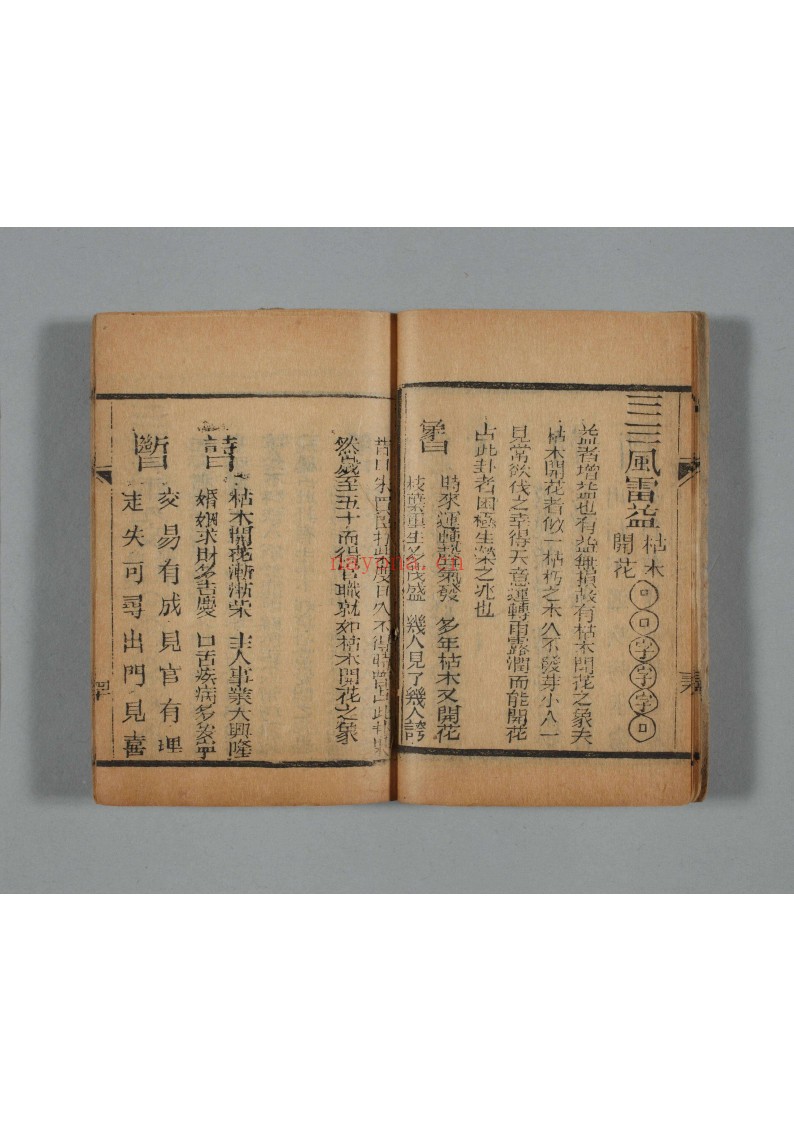 風雷益 枯木開花 口口字字字口
益者增益也有益無損故有枯木開花之象夫
枯木開花者似一枯朽之木久不發芽小人一
見常欲伐之幸得天意運轉雨露潤而能開花
占此卦者困極生榮之兆也
象曰 時來運轉氣發 多年枯木又開花
枝葉重生多茂盛 幾人見了幾人誇
昔日朱買臣打此卦久不得時占此卦果
然歲至五十而得官職就如枯木開花之象
詩曰 枯木開花漸漸榮 主人事業大興隆
婚姻求財多吉慶 口舌疾病多安寧
斷曰 交易有成見官有理
走失可尋出門見喜
nayona.cn